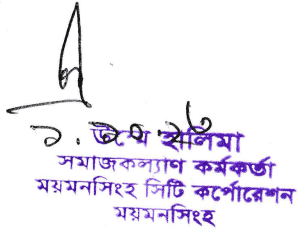 উম্মে হালিমা
সমাজকল্যাণ কর্মকর্তা
ময়মনসিংহ সিটি কর্পোরেশন
ময়মনসিংহ